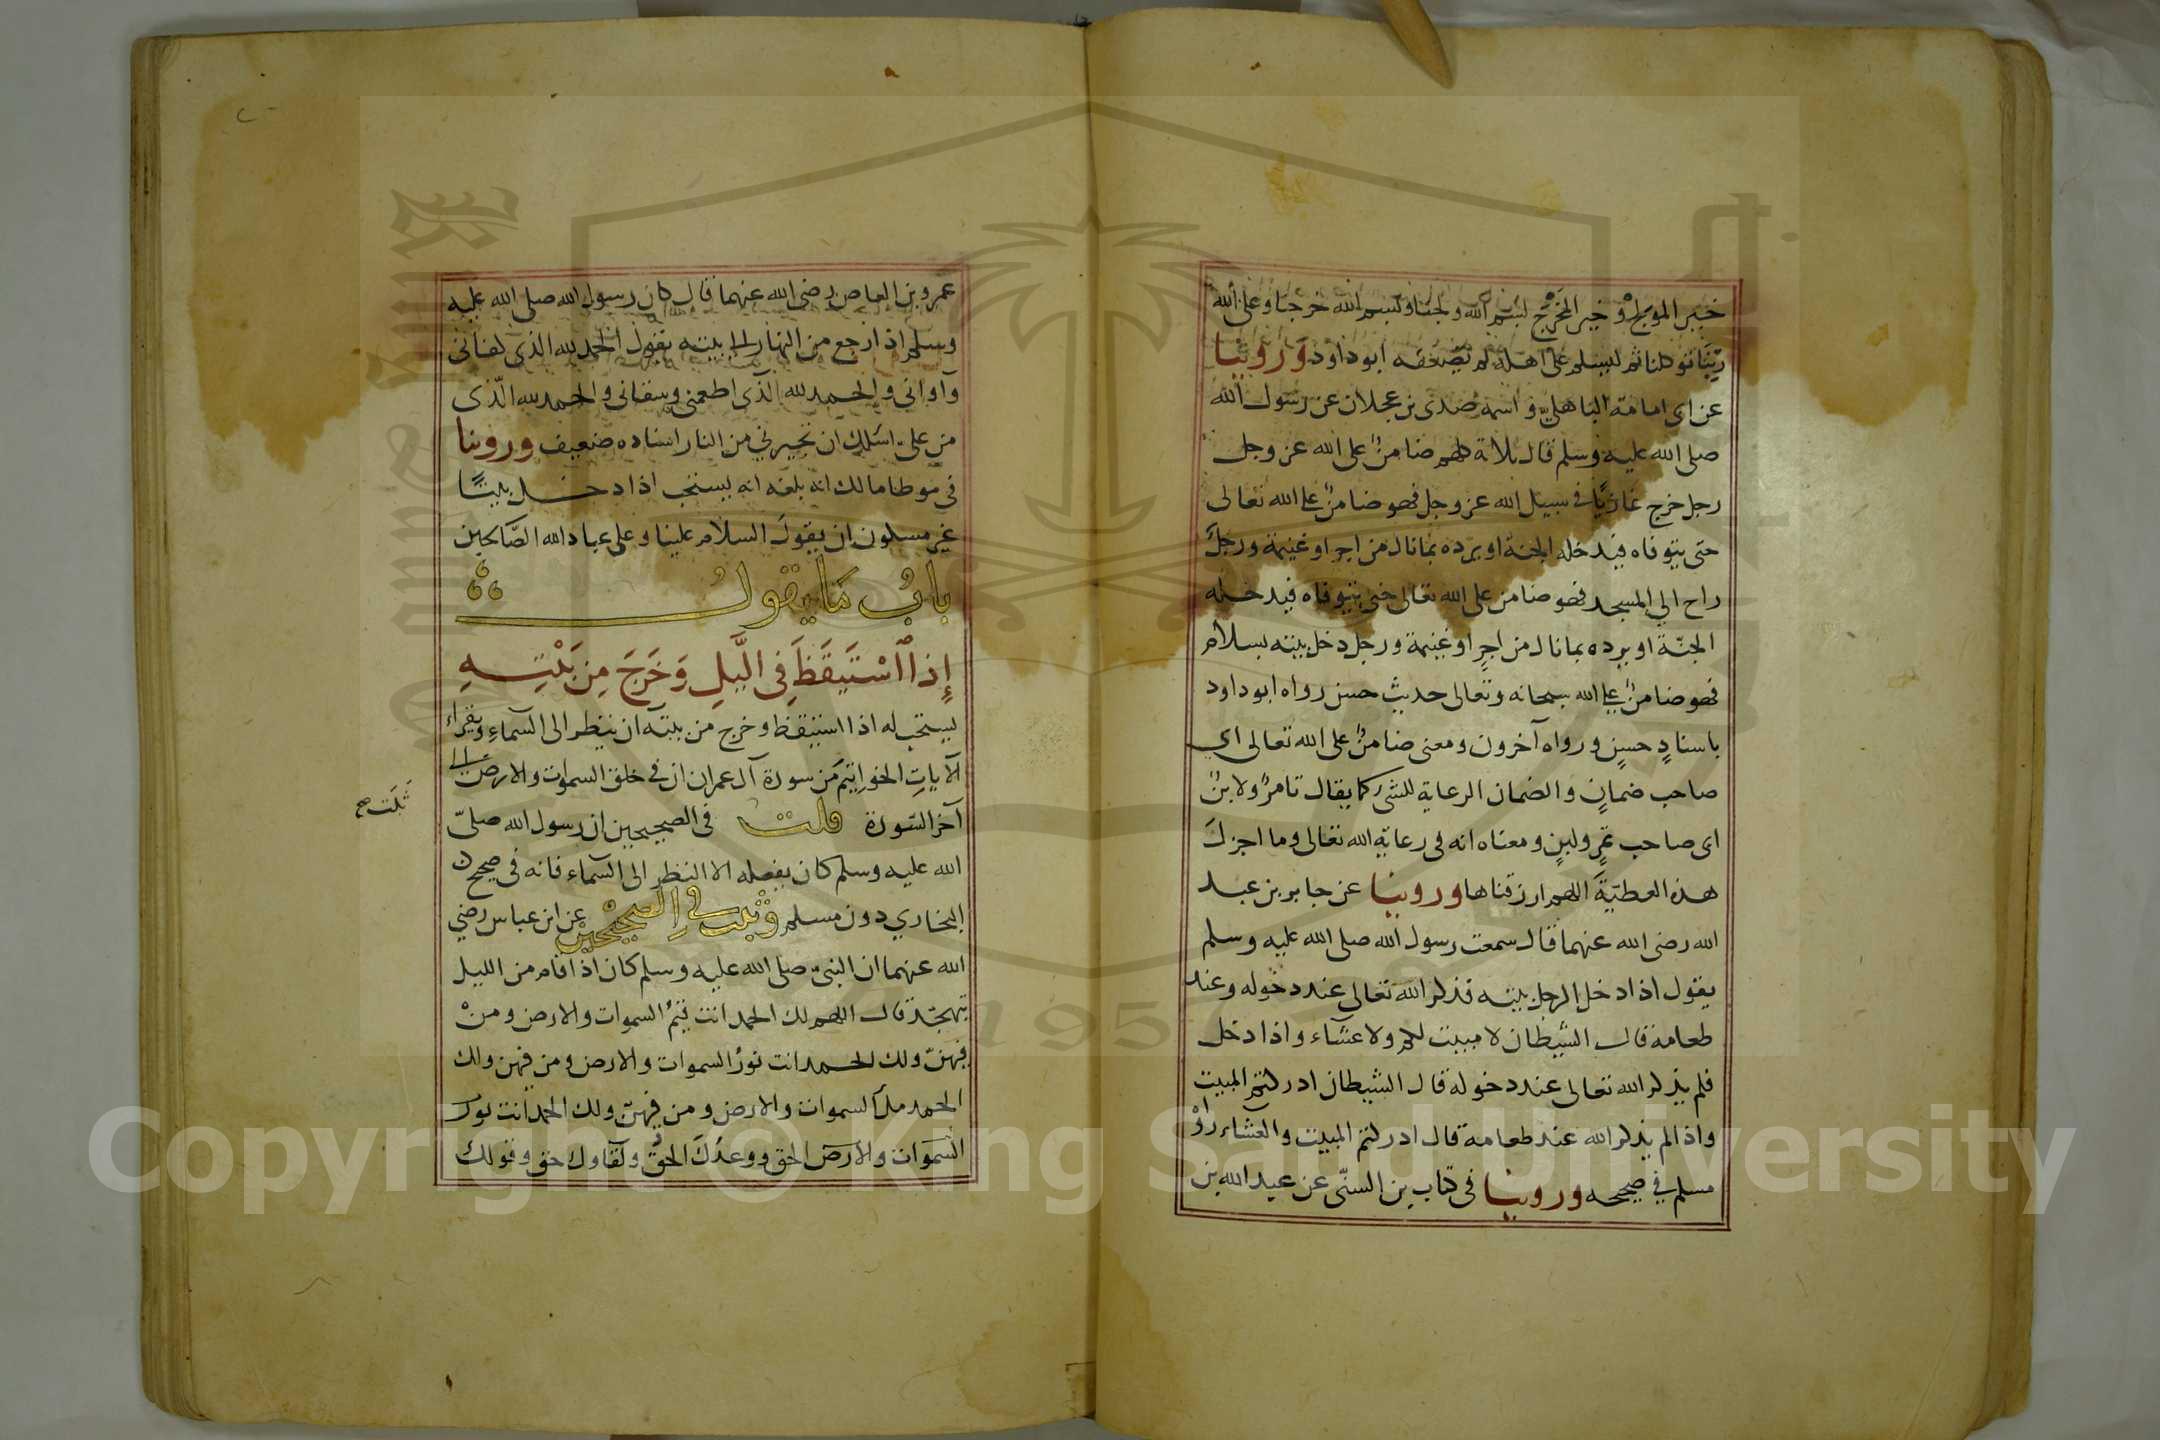 خير المولج وخير المخرج بسم الله ولجنا وبسم الله خرجنا وعلى الله
ربنا توكلنا ثم ليسلم على اهله لم يضعفه ابوداود وروينا
عن ابي امامة الباهلي واسمه صدى بن عجلان عن رسول الله
صلى الله عليه وسلم قال ثلاثة كلهم ضامن على الله عز وجل
رجل خرج غازيا في سبيل الله عز وجل فهو ضامن على الله تعالى
حتى يتوفاه فيدخله الجنة او يرده بما نال من اجر او غنيمة ورجل
راح الى المسجد فهو ضامن على الله تعالى حتى يتوفاه فيدخله
الجنّة او يرده بما نال من اجرٍ او غنيمة ورجل دخل بيته بسلام
فهو ضامنٌ على الله سبحانه وتعالى حديث حسن رواه ابوداود
باسنادٍ حسنٍ ورواه آخرون ومعنى ضامنٌ على الله تعالى اي
صاحب ضمانٍ والضمان الرعاية للشئ كما يقال تامرٌ ولابنٌ
اى صاحب تمرٍ ولبنٍ ومعناه انه في رعاية الله تعالى وما اجزل
هذه العطيّة اللهم ارزقناها وروينا عن جابر بن عبد
الله رضى الله عنهما قال سمعت رسول الله صلى الله عليه وسلم
يقول اذا دخل الرجل بيته فذكر الله تعالى عند دخوله وعند
طعامه قال الشيطان لا مبيت لكم ولا عشاء واذا دخل
فلم يذكر الله تعالى عند دخوله قال الشيطان ادركتم المبيت
واذا لم يذكر الله عند طعامه قال ادركتم المبيت والعشاء رواه
مسلم في صحيحه وروينا في كتاب بن السنّى عن عبد الله بن
عمرو بن العاص رضى الله عنهما قال كان رسول الله صلى الله عليه
وسلم اذا رجع من النهار الى بيته يقول الحمد لله الذى كفانى
وآوانى والحمد لله الّذى اطعمنى وسقانى والحمد لله الّذى
من علىّ اسئلك ان تجيرني من النار اسناده ضعيف وروينا
في موطا مالك انه بلغه انه يستحب اذا دخل بيتًا
غير مسكون ان يقول السلام علينا وعلى عباد الله الصّالحين
بابُ مَا يقولُ
إِذَا اسْتَيقَظَ فِى اللَّيلِ وَخَرَجَ مِن بَيْتِهِ
يستحب له اذا استيقظ وخرج من بيته ان ينظر الى السّماء ويقراء
الآيات الخواتيم من سورة آل عمران ان في خلق السموات والارض الى
آخر السّورة قلت في الصحيحين ان رسول الله صلىّ
ثبت صح
الله عليه وسلم كان يفعله الا النظر الى السّماء فانه في صحيح
البخاري دون مسلم وثبت في الصحيحين عن ابن عباس رضي
الله عنهما ان النبىّ صلى الله عليه وسلم كان اذا قام من الليل
يتهجّد قال اللهم لك الحمد انت قيّمُ السموات والارض ومنْ
فيهنّ ولك الحمد انت نورُ السموات والارض ومن فيهن ولك
الحمد ملك السموات والارض ومن فيهنّ ولك الحمد انت نور
السّموات والارض الحق ووعدُكَ الحقُّ ولقاوك حق وقولك
Copyright © King Saud University
1957